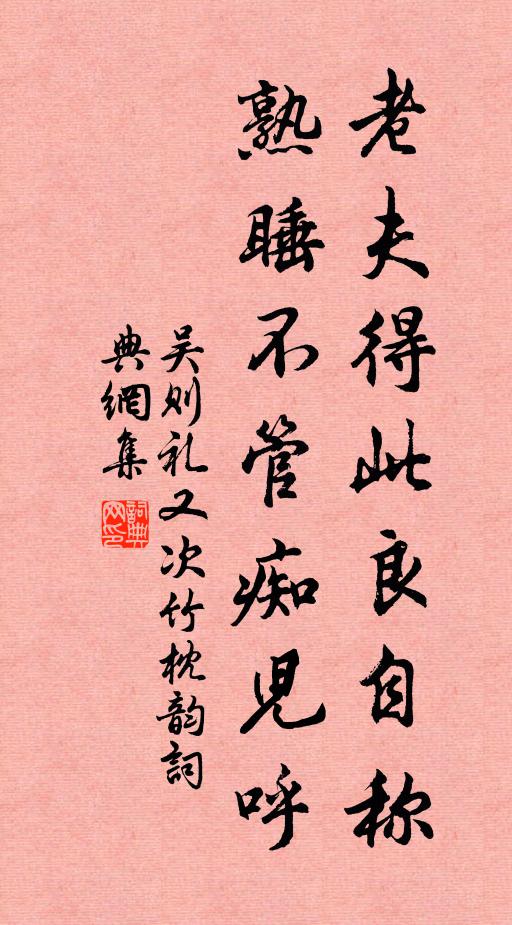 老夫得此良自称
熟睡不管痴児呼
吴则礼又次竹枕韵詞
典網集
詞典
网印